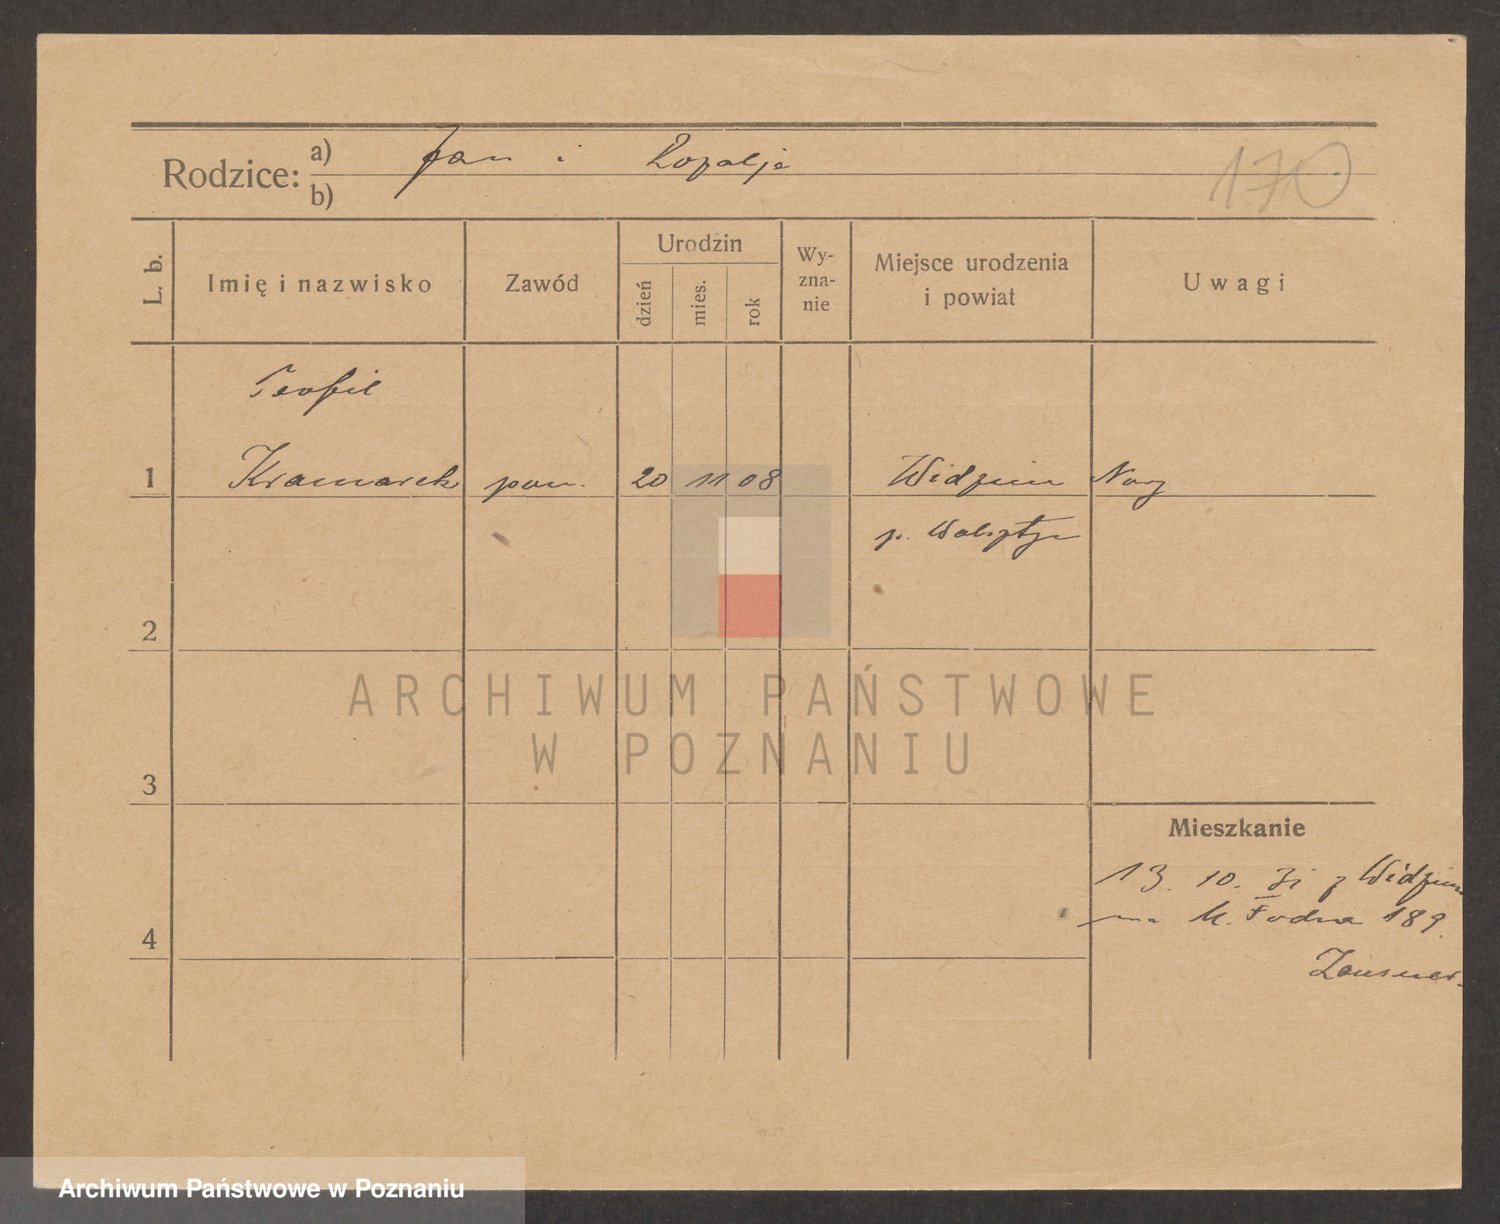 Rodzice:
a) Jan i Rozalja
b)
170
L. b.
Imię i nazwisko
Zawód
Urodzin
dzień
mies.
rok
Wy-
zna-
nie
Miejsce urodzenia
i powiat
Uwagi
Teofil
1 Kramarek pan. 20 11 08 Widzim Nowy
p. Wolsztyn
2
3
4
Mieszkanie
13. 10. 31 z Widzim
na M. Fodra 189.
ARCHIWUM PAŃSTWOWE
W POZNANIU
Archiwum Państwowe w Poznaniu